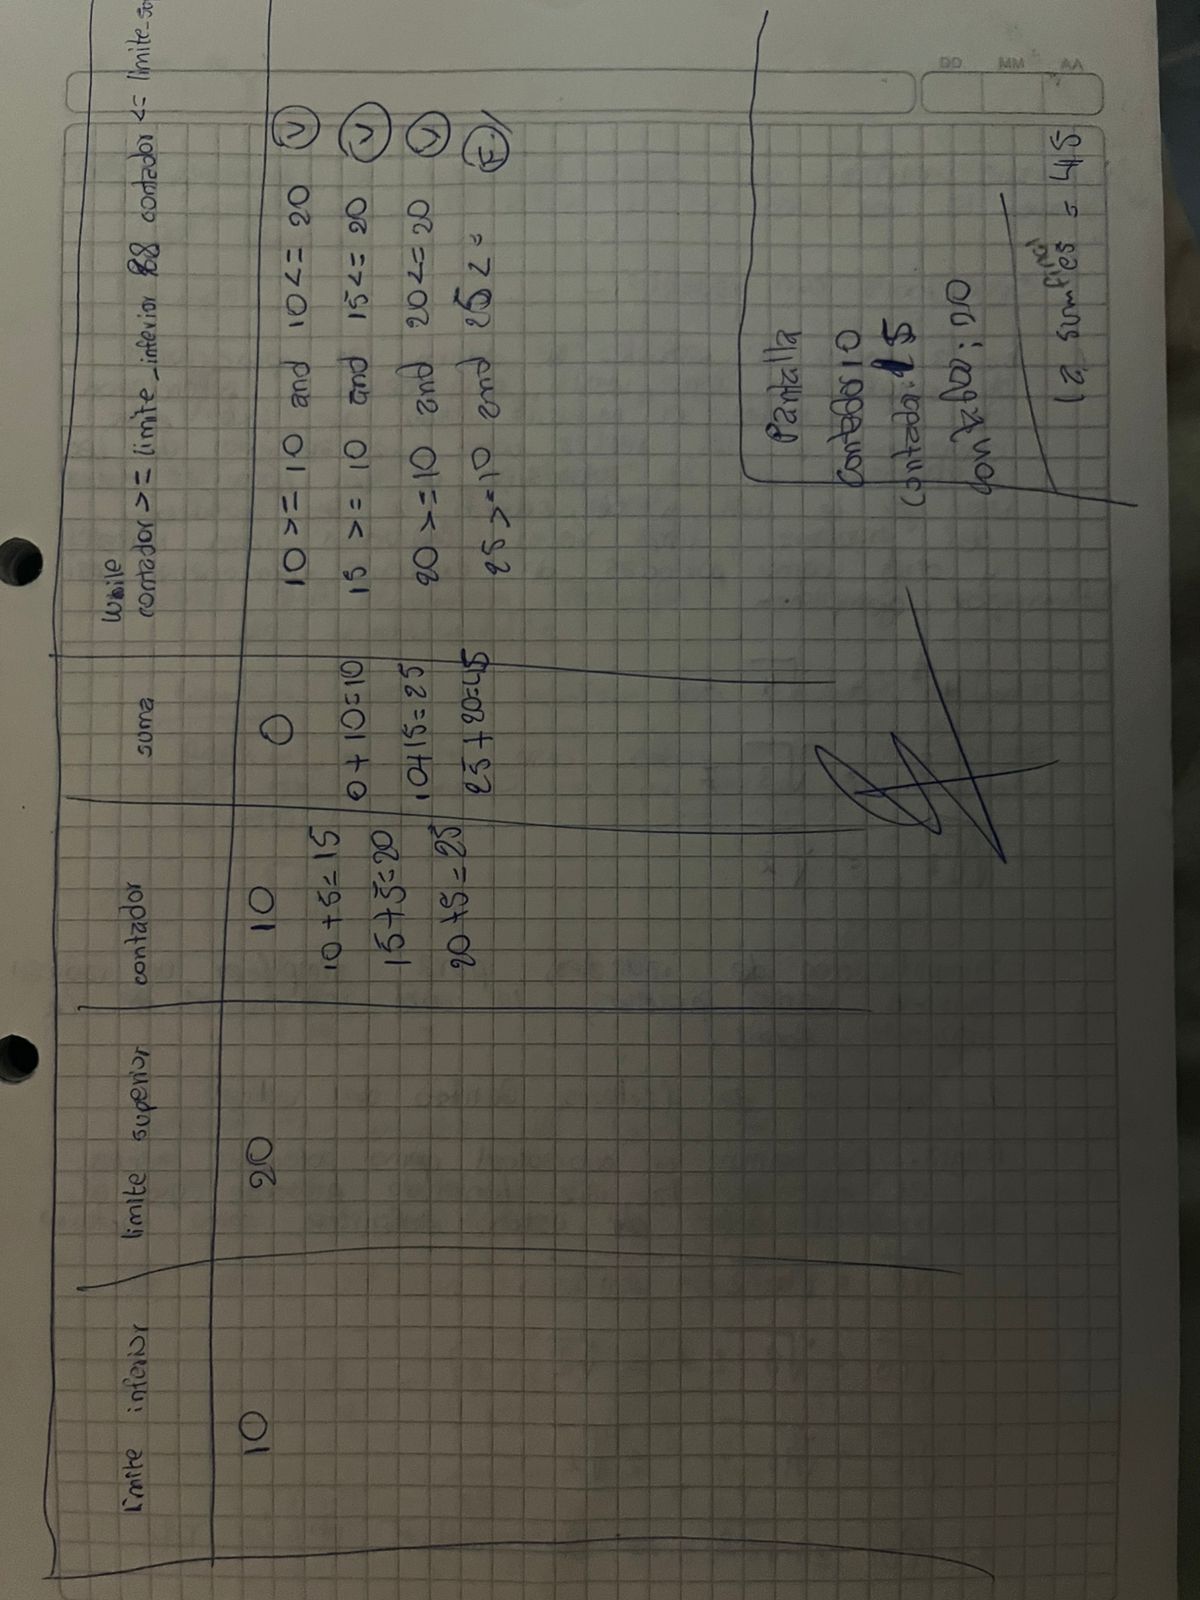 DD MM AA
limite inferior
limite superior
contador
suma
While
contador >= limite_inferior && contador <= limite_sup
10
20
10
0
10 >= 10 and 10 <= 20 V
10 + 5 = 15
0 + 10 = 10
15 >= 10 and 15 <= 20 V
15 + 5 = 20
10 + 15 = 25
20 >= 10 and 20 <= 20 V
20 + 5 = 25
25 + 20 = 45
25 >= 10 and 25 <= F
Pantalla
Contador 10
Contador: 15
Contador: 20
la suma final es = 45